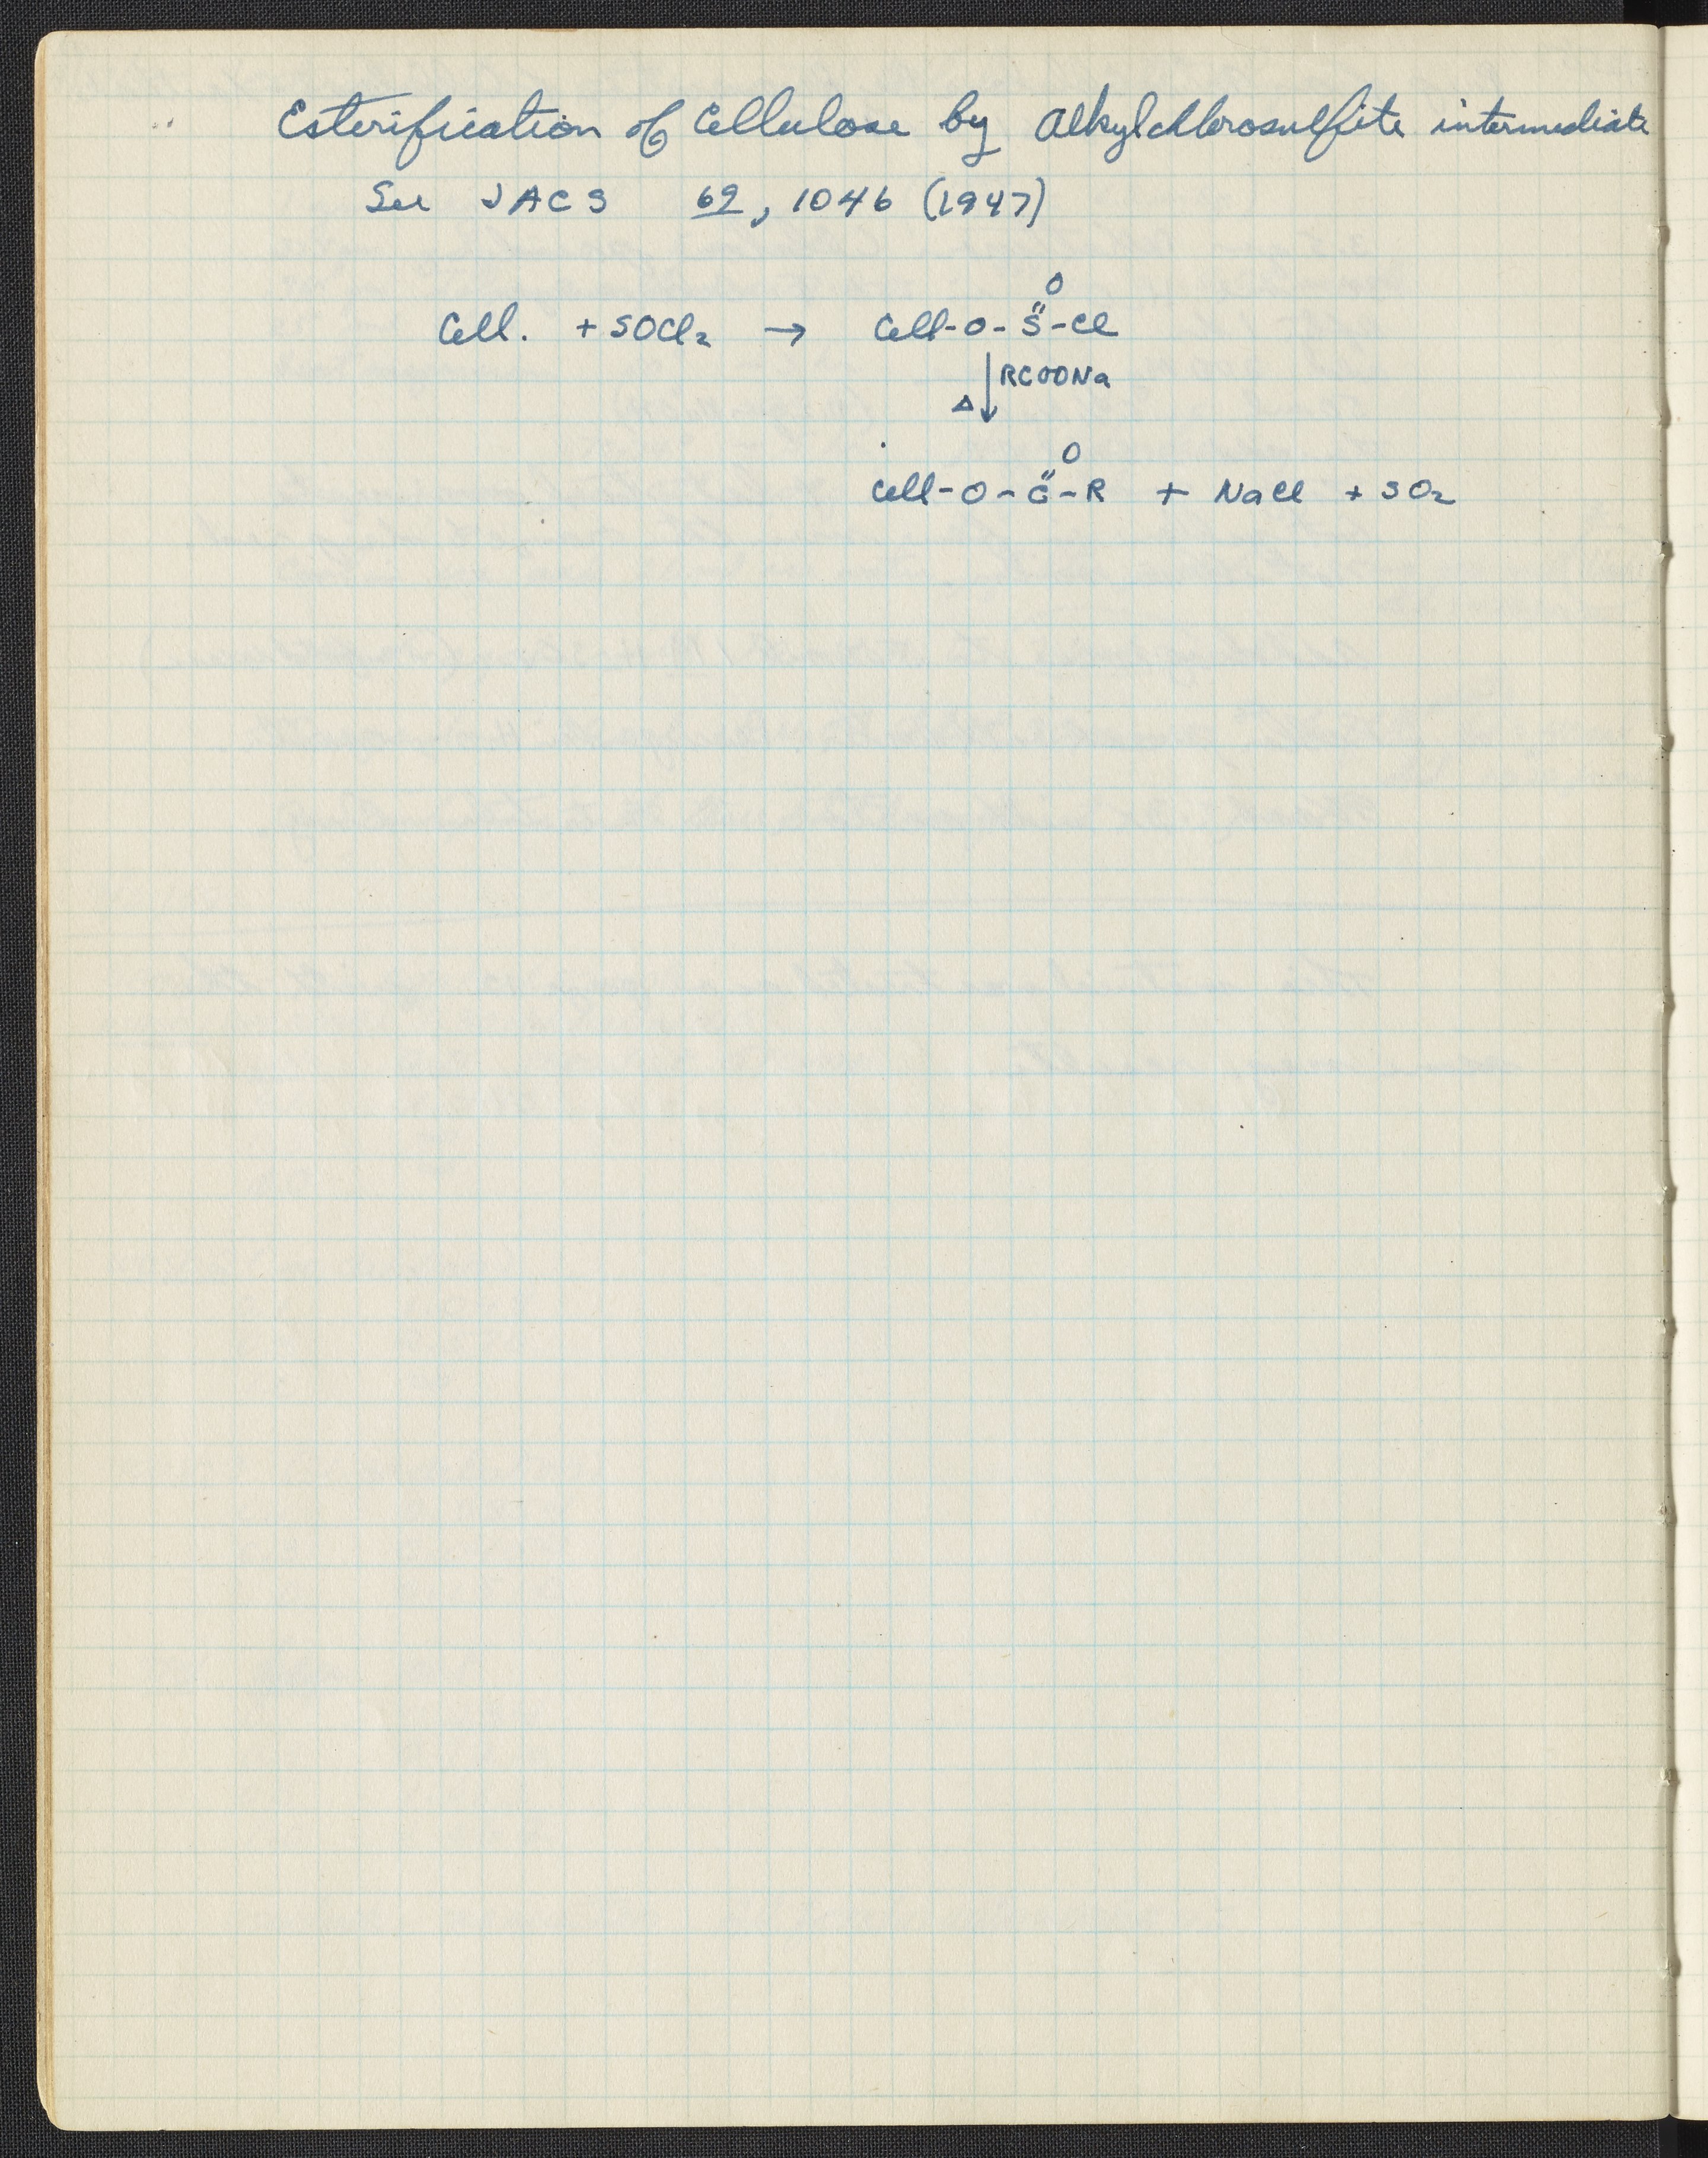 Esterification of Cellulose by Alkylchlorosulfite intermediate
See JACS 69, 1046 (1947)
O
Cell. + SOCl₂ → Cell-O-S-Cl
RCOONa
Δ
O
Cell-O-C-R + NaCl + SO₂